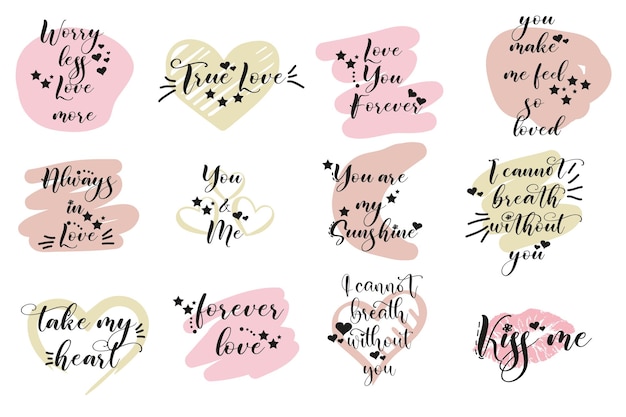 Worry
less
Love
more
True Love
Love
You
Forever
you
make
me feel
so
loved
Always
in
Love
You
&
Me
You are
my
Sunshine
I cannot
breath
without
you
take my
heart
forever
love
I cannot
breath
without
you
Kiss me